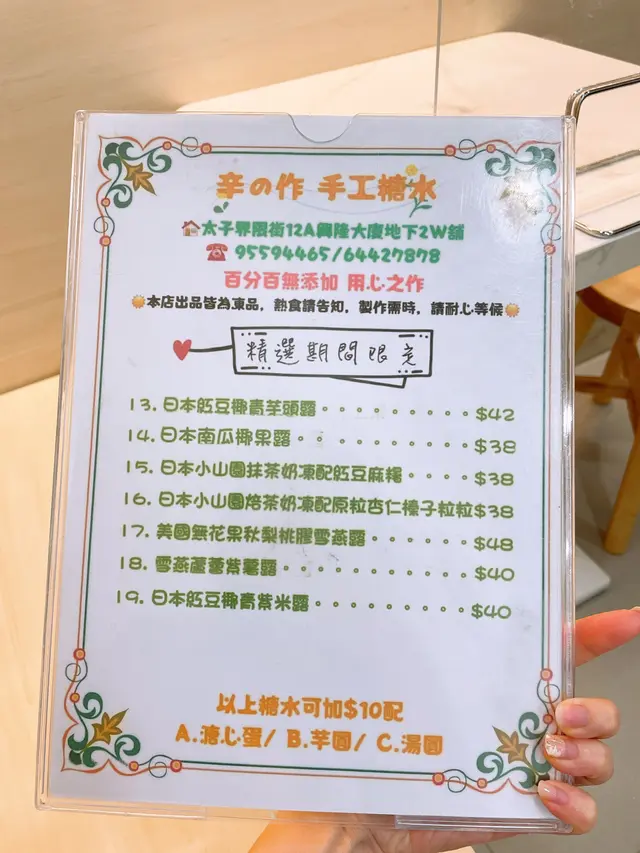 辛の作 手工糖水
太子界限街12A興隆大廈地下2W舖
95594465/64427878
百分百無添加 用心之作
本店出品皆為凍品，熱食請告知，製作需時，請耐心等候
精選期間限定
13. 日本紅豆椰青芋頭露・・・・・・・・・$42
14. 日本南瓜椰果露・・ ・・・・・・・・$38
15. 日本小山園抹茶奶凍配紅豆麻糬・・・・$38
16. 日本小山園焙茶奶凍配原粒杏仁榛子粒粒$38
17. 美國無花果秋梨桃膠雪燕露・・・・・・$48
18. 雪燕蘆薈紫薯露・・・・・・・・・・・$40
19. 日本紅豆椰青紫米露・・・・・・・・・$40
以上糖水可加$10配
A.溏心蛋/ B.芋圓/ C.湯圓